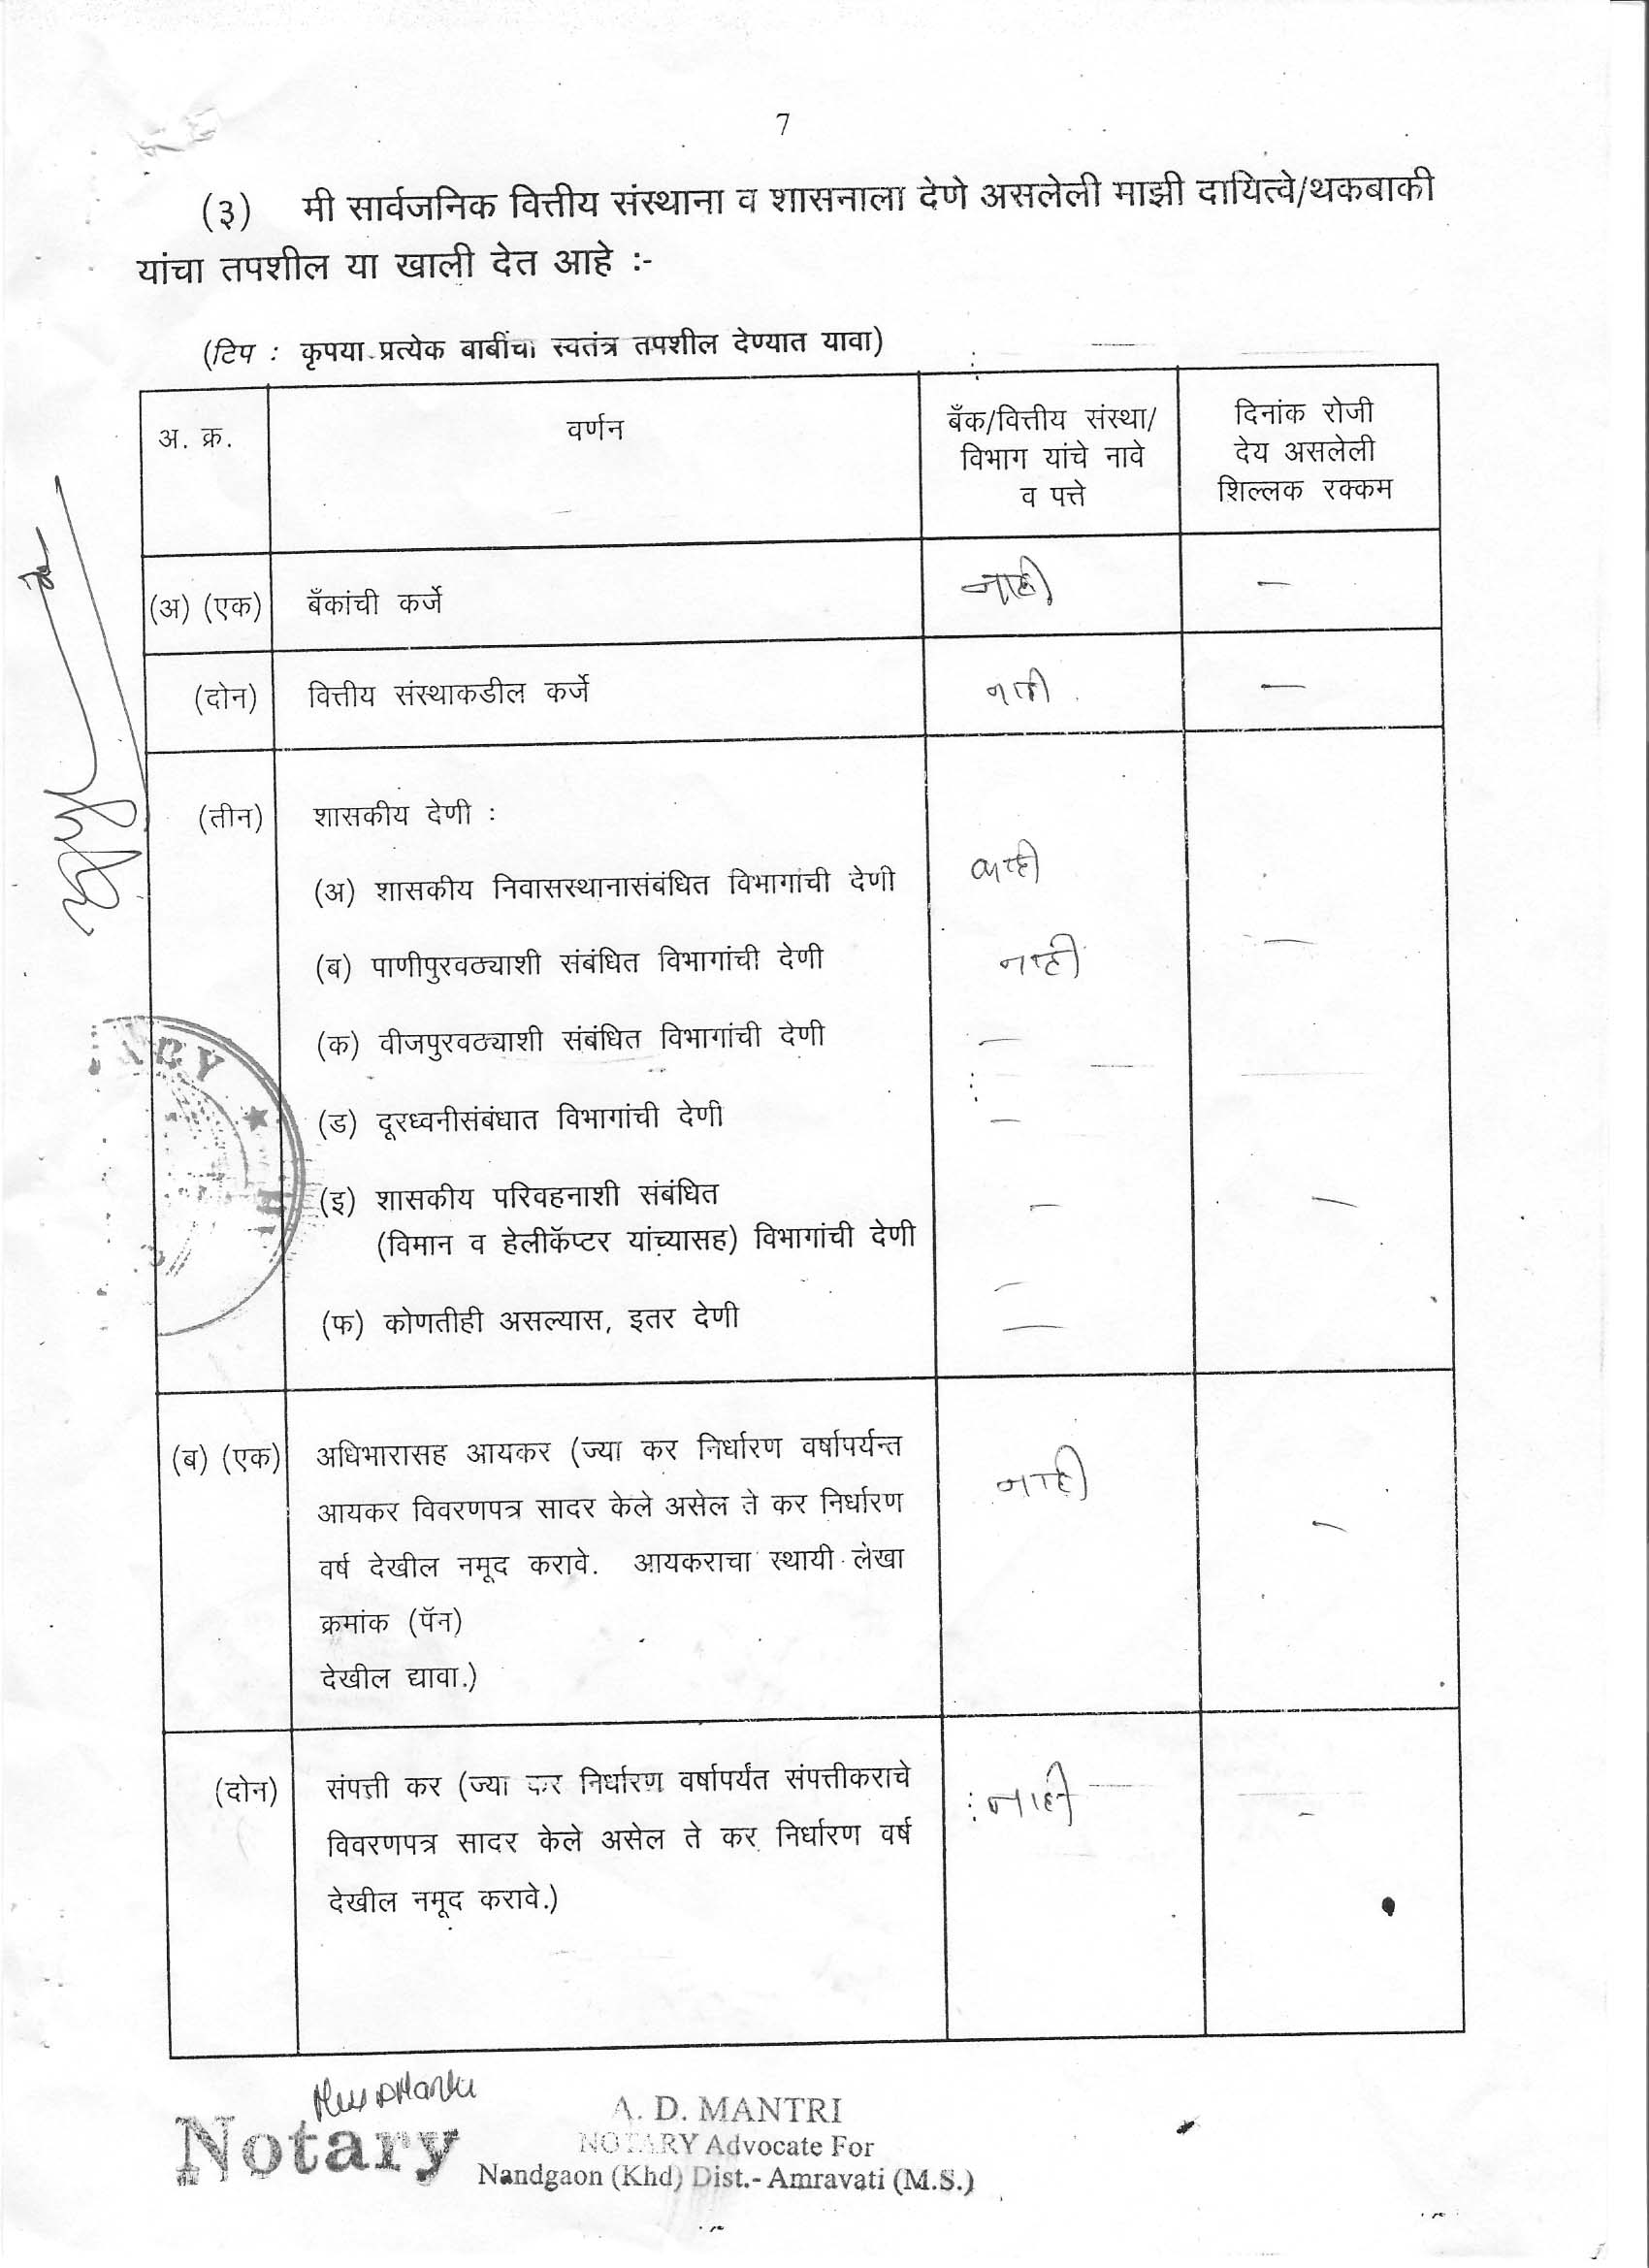 7
(३) मी सार्वजनिक वित्तीय संस्थाना व शासनाला देणे असलेली माझी दायित्वे/थकबाकी
यांचा तपशील या खाली देत आहे :-
(टिप : कृपया प्रत्येक बाबींचा स्वतंत्र तपशील देण्यात यावा)
अ. क्र.
वर्णन
बँक/वित्तीय संस्था/
विभाग यांचे नावे
व पत्ते
दिनांक रोजी
देय असलेली
शिल्लक रक्कम
(अ) (एक) बँकांची कर्जे नाही —
(दोन) वित्तीय संस्थाकडील कर्जे नाही —
(तीन) शासकीय देणी :
(अ) शासकीय निवासस्थानासंबंधित विभागांची देणी नाही
(ब) पाणीपुरवठ्याशी संबंधित विभागांची देणी नाही —
(क) वीजपुरवठ्याशी संबंधित विभागांची देणी —
(ड) दूरध्वनीसंबंधात विभागांची देणी —
(इ) शासकीय परिवहनाशी संबंधित — —
(विमान व हेलीकॅप्टर यांच्यासह) विभागांची देणी
(फ) कोणतीही असल्यास, इतर देणी —
(ब) (एक) अधिभारासह आयकर (ज्या कर निर्धारण वर्षापर्यन्त नाही —
आयकर विवरणपत्र सादर केले असेल ते कर निर्धारण
वर्ष देखील नमूद करावे. आयकराचा स्थायी लेखा
क्रमांक (पॅन)
देखील द्यावा.)
(दोन) संपत्ती कर (ज्या कर निर्धारण वर्षापर्यंत संपत्तीकराचे नाही —
विवरणपत्र सादर केले असेल ते कर निर्धारण वर्ष
देखील नमूद करावे.)
Notary
A. D. MANTRI
NOTARY Advocate For
Nandgaon (Khd) Dist.- Amravati (M.S.)